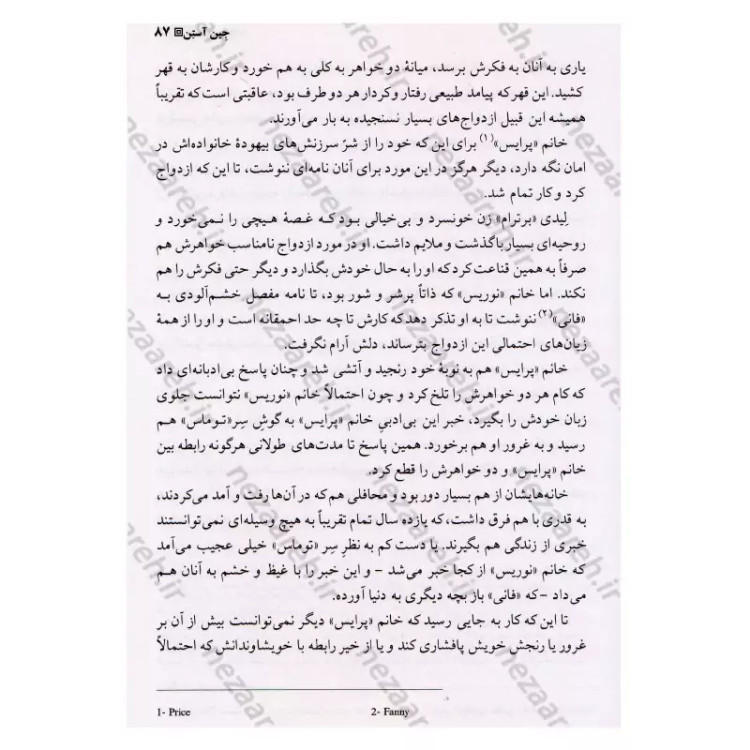 جین آستن ۸۷
یاری به آنان به فکرش برسد، میانهٔ دو خواهر به کلی به هم خورد و کارشان به قهر
کشید. این قهر که پیامد طبیعی رفتار و کردار هر دو طرف بود، عاقبتی است که تقریباً
همیشه این قبیل ازدواج‌های بسیار نسنجیده به بار می‌آورند.
خانم «پرایس»(۱) برای این که خود را از شرّ سرزنش‌های بیهودهٔ خانواده‌اش در
امان نگه دارد، دیگر هرگز در این مورد برای آنان نامه‌ای ننوشت، تا این که ازدواج
کرد و کار تمام شد.
لِیدی «برترام» زن خونسرد و بی‌خیالی بود که غصهٔ هیچی را نمی‌خورد و
روحیه‌ای بسیار باگذشت و ملایم داشت. او در مورد ازدواج نامناسب خواهرش هم
صرفاً به همین قناعت کرد که او را به حال خودش بگذارد و دیگر حتی فکرش را هم
نکند. اما خانم «نوریس» که ذاتاً پرشر و شور بود، تا نامه مفصل خشم‌آلودی به
«فانی»(۲) ننوشت تا به او تذکر دهد که کارش تا چه حد احمقانه است و او را از همهٔ
زیان‌های احتمالی این ازدواج بترساند، دلش آرام نگرفت.
خانم «پرایس» هم به نوبهٔ خود رنجید و آتشی شد و چنان پاسخ بی‌ادبانه‌ای داد
که کام هر دو خواهرش را تلخ کرد و چون احتمالاً خانم «نوریس» نتوانست جلوی
زبان خودش را بگیرد، خبر این بی‌ادبیِ خانم «پرایس» به گوشِ سِر «توماس» هم
رسید و به غرور او هم برخورد. همین پاسخ تا مدت‌های طولانی هرگونه رابطه بین
خانم «پرایس» و دو خواهرش را قطع کرد.
خانه‌هایشان از هم بسیار دور بود و محافلی هم که در آن‌ها رفت و آمد می‌کردند،
به قدری با هم فرق داشت، که یازده سال تمام تقریباً به هیچ وسیله‌ای نمی‌توانستند
خبری از زندگی هم بگیرند. یا دست کم به نظرِ سِر «توماس» خیلی عجیب می‌آمد
که خانم «نوریس» از کجا خبر می‌شد - و این خبر را با غیظ و خشم به آنان هم
می‌داد - که «فانی» باز بچه دیگری به دنیا آورده.
تا این که کار به جایی رسید که خانم «پرایس» دیگر نمی‌توانست بیش از آن بر
غرور یا رنجش خویش پافشاری کند و یا از خیر رابطه با خویشاوندانش که احتمالاً
1- Price 2- Fanny
nezaareh.ir